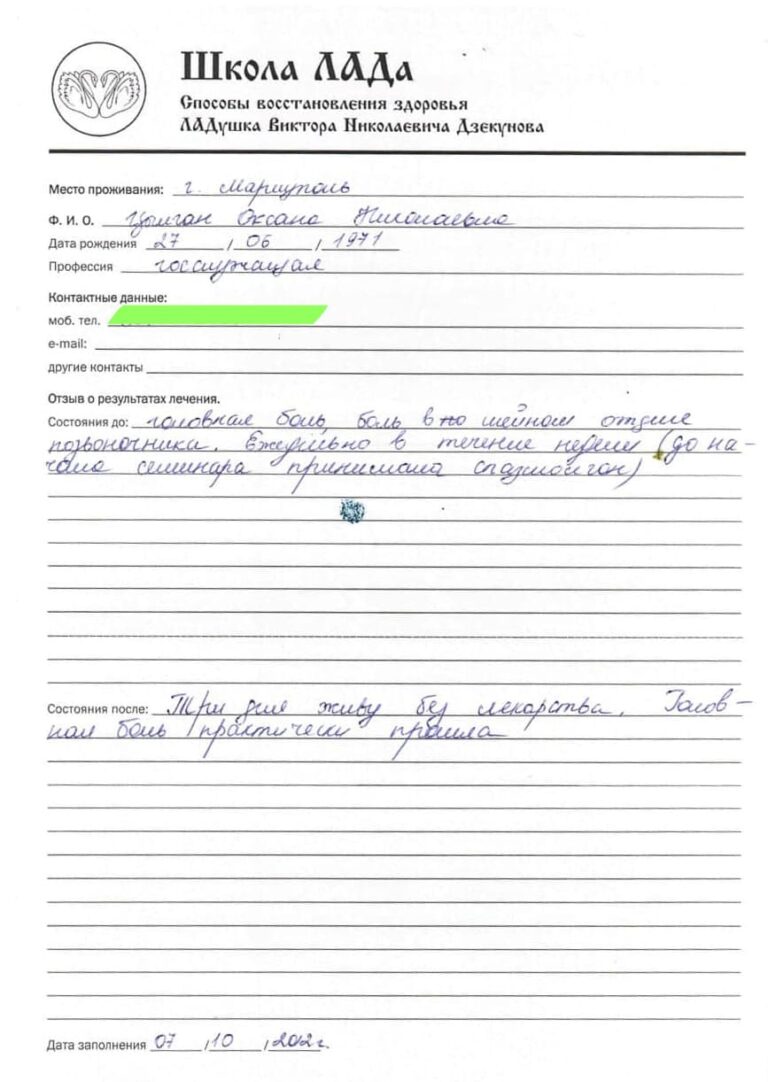 Школа ЛАДа
Способы восстановления здоровья
ЛАДушка Виктора Николаевича Дзекунова
Место проживания: г. Мариуполь
Ф. И. О. Цылган Оксана Николаевна
Дата рождения 27 / 06 / 1971
Профессия госслужащая
Контактные данные:
моб. тел.
e-mail:
другие контакты
Отзыв о результатах лечения.
Состояния до: головная боль, боль в шейном отделе
позвоночника. Ежедневно в течение недели (до на-
чала семинара принимала спазмалгон)
Состояния после: Три дня живу без лекарства. Голов-
ная боль практически прошла
Дата заполнения 07 / 10 / 2012г.